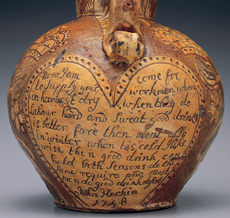 Now I am come for
to supply your workmen when
in harvist dry when they do
Labour hard and Sweat good drinke
is better fare then meat
in winter when tis cold I like
wise then good drink can
both seasons do the
same require
do good drink
John Hockin
1748